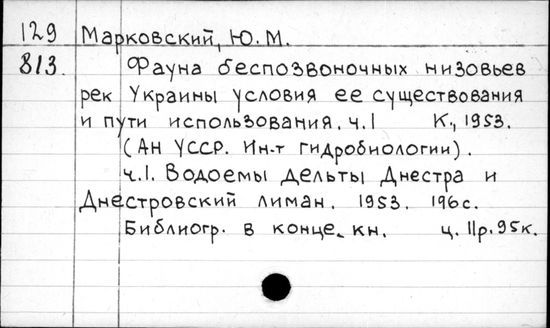 129 Марковский, Ю. М.
813. Фауна беспозвоночных низовьев
рек Украины условия ее существования
и пути использования. ч.1 К., 1953.
(АН УССР. Ин-т гидробиологии).
ч.1. Водоемы дельты Днестра и
Днестровский лиман. 1953. 196с.
Библиогр. в конце кн. ц. 11р.95к.